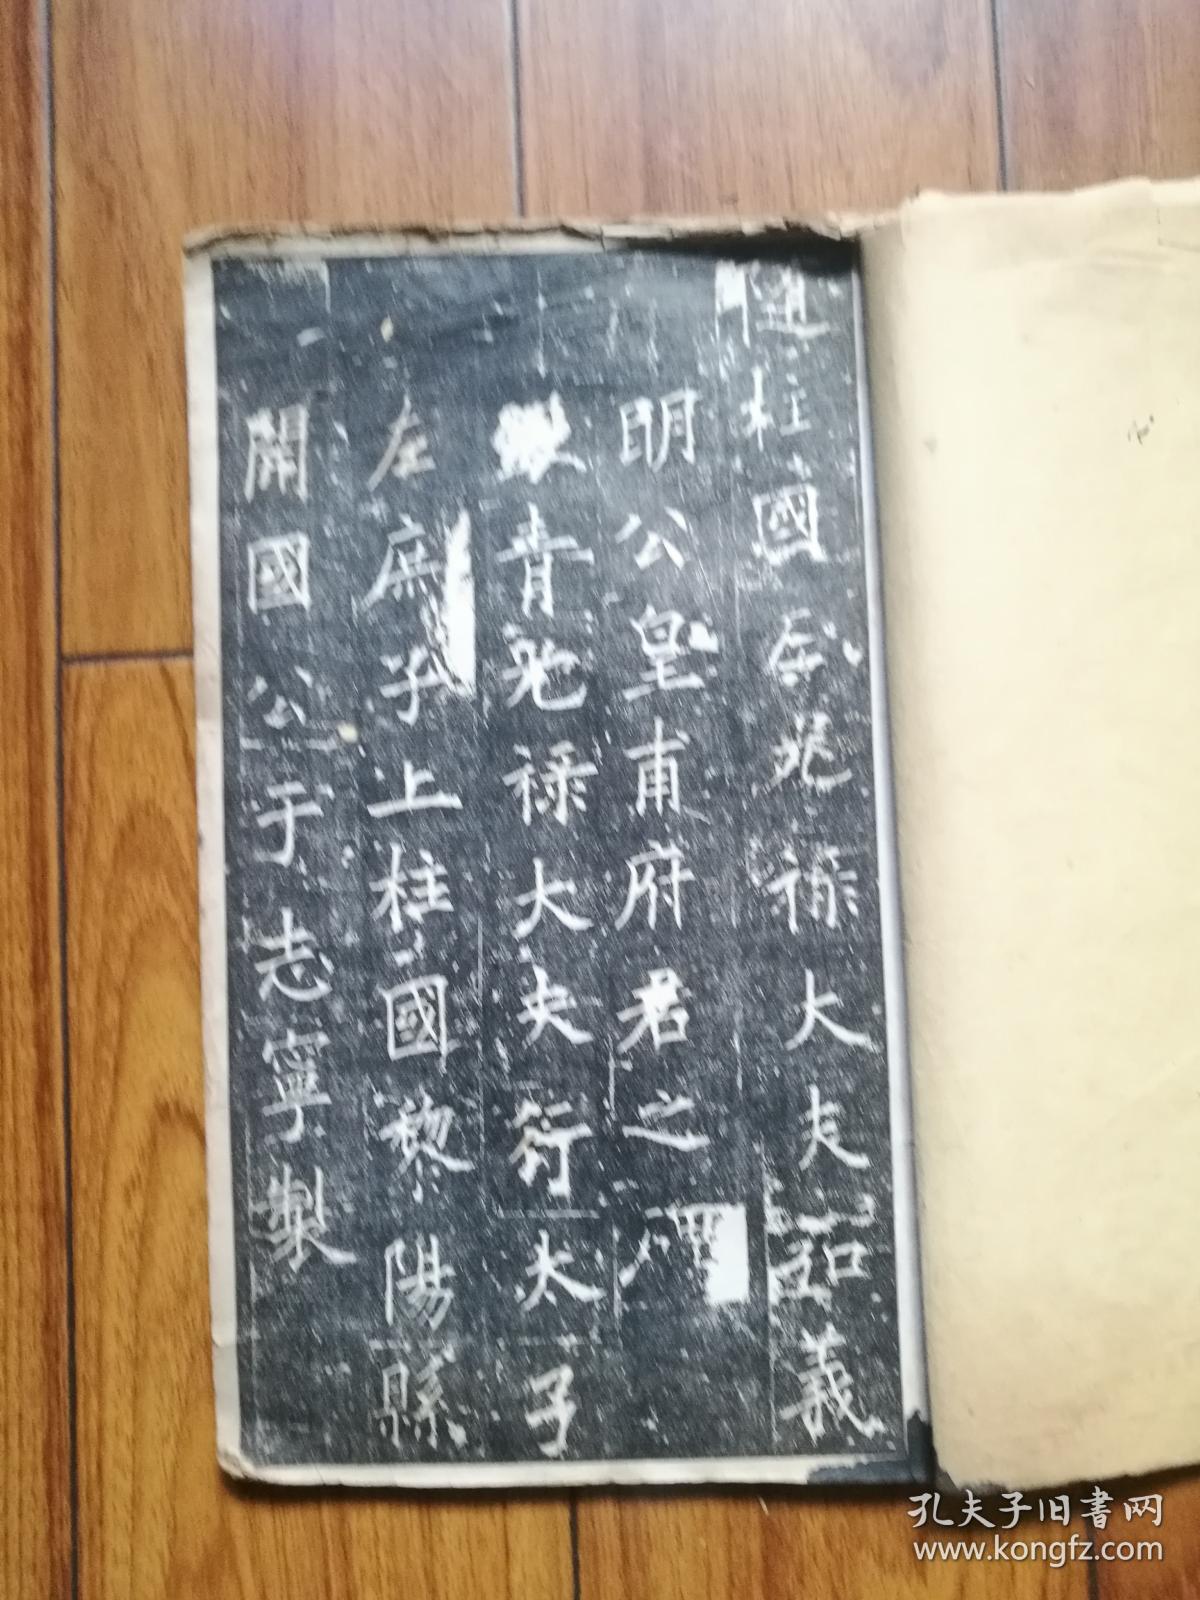 隨柱國左光祿大夫弘義
明公皇甫府君之碑
銀青光祿大夫行太子
左庶子上柱國黎陽縣
開國公于志寧製
孔夫子旧書网
www.kongfz.com